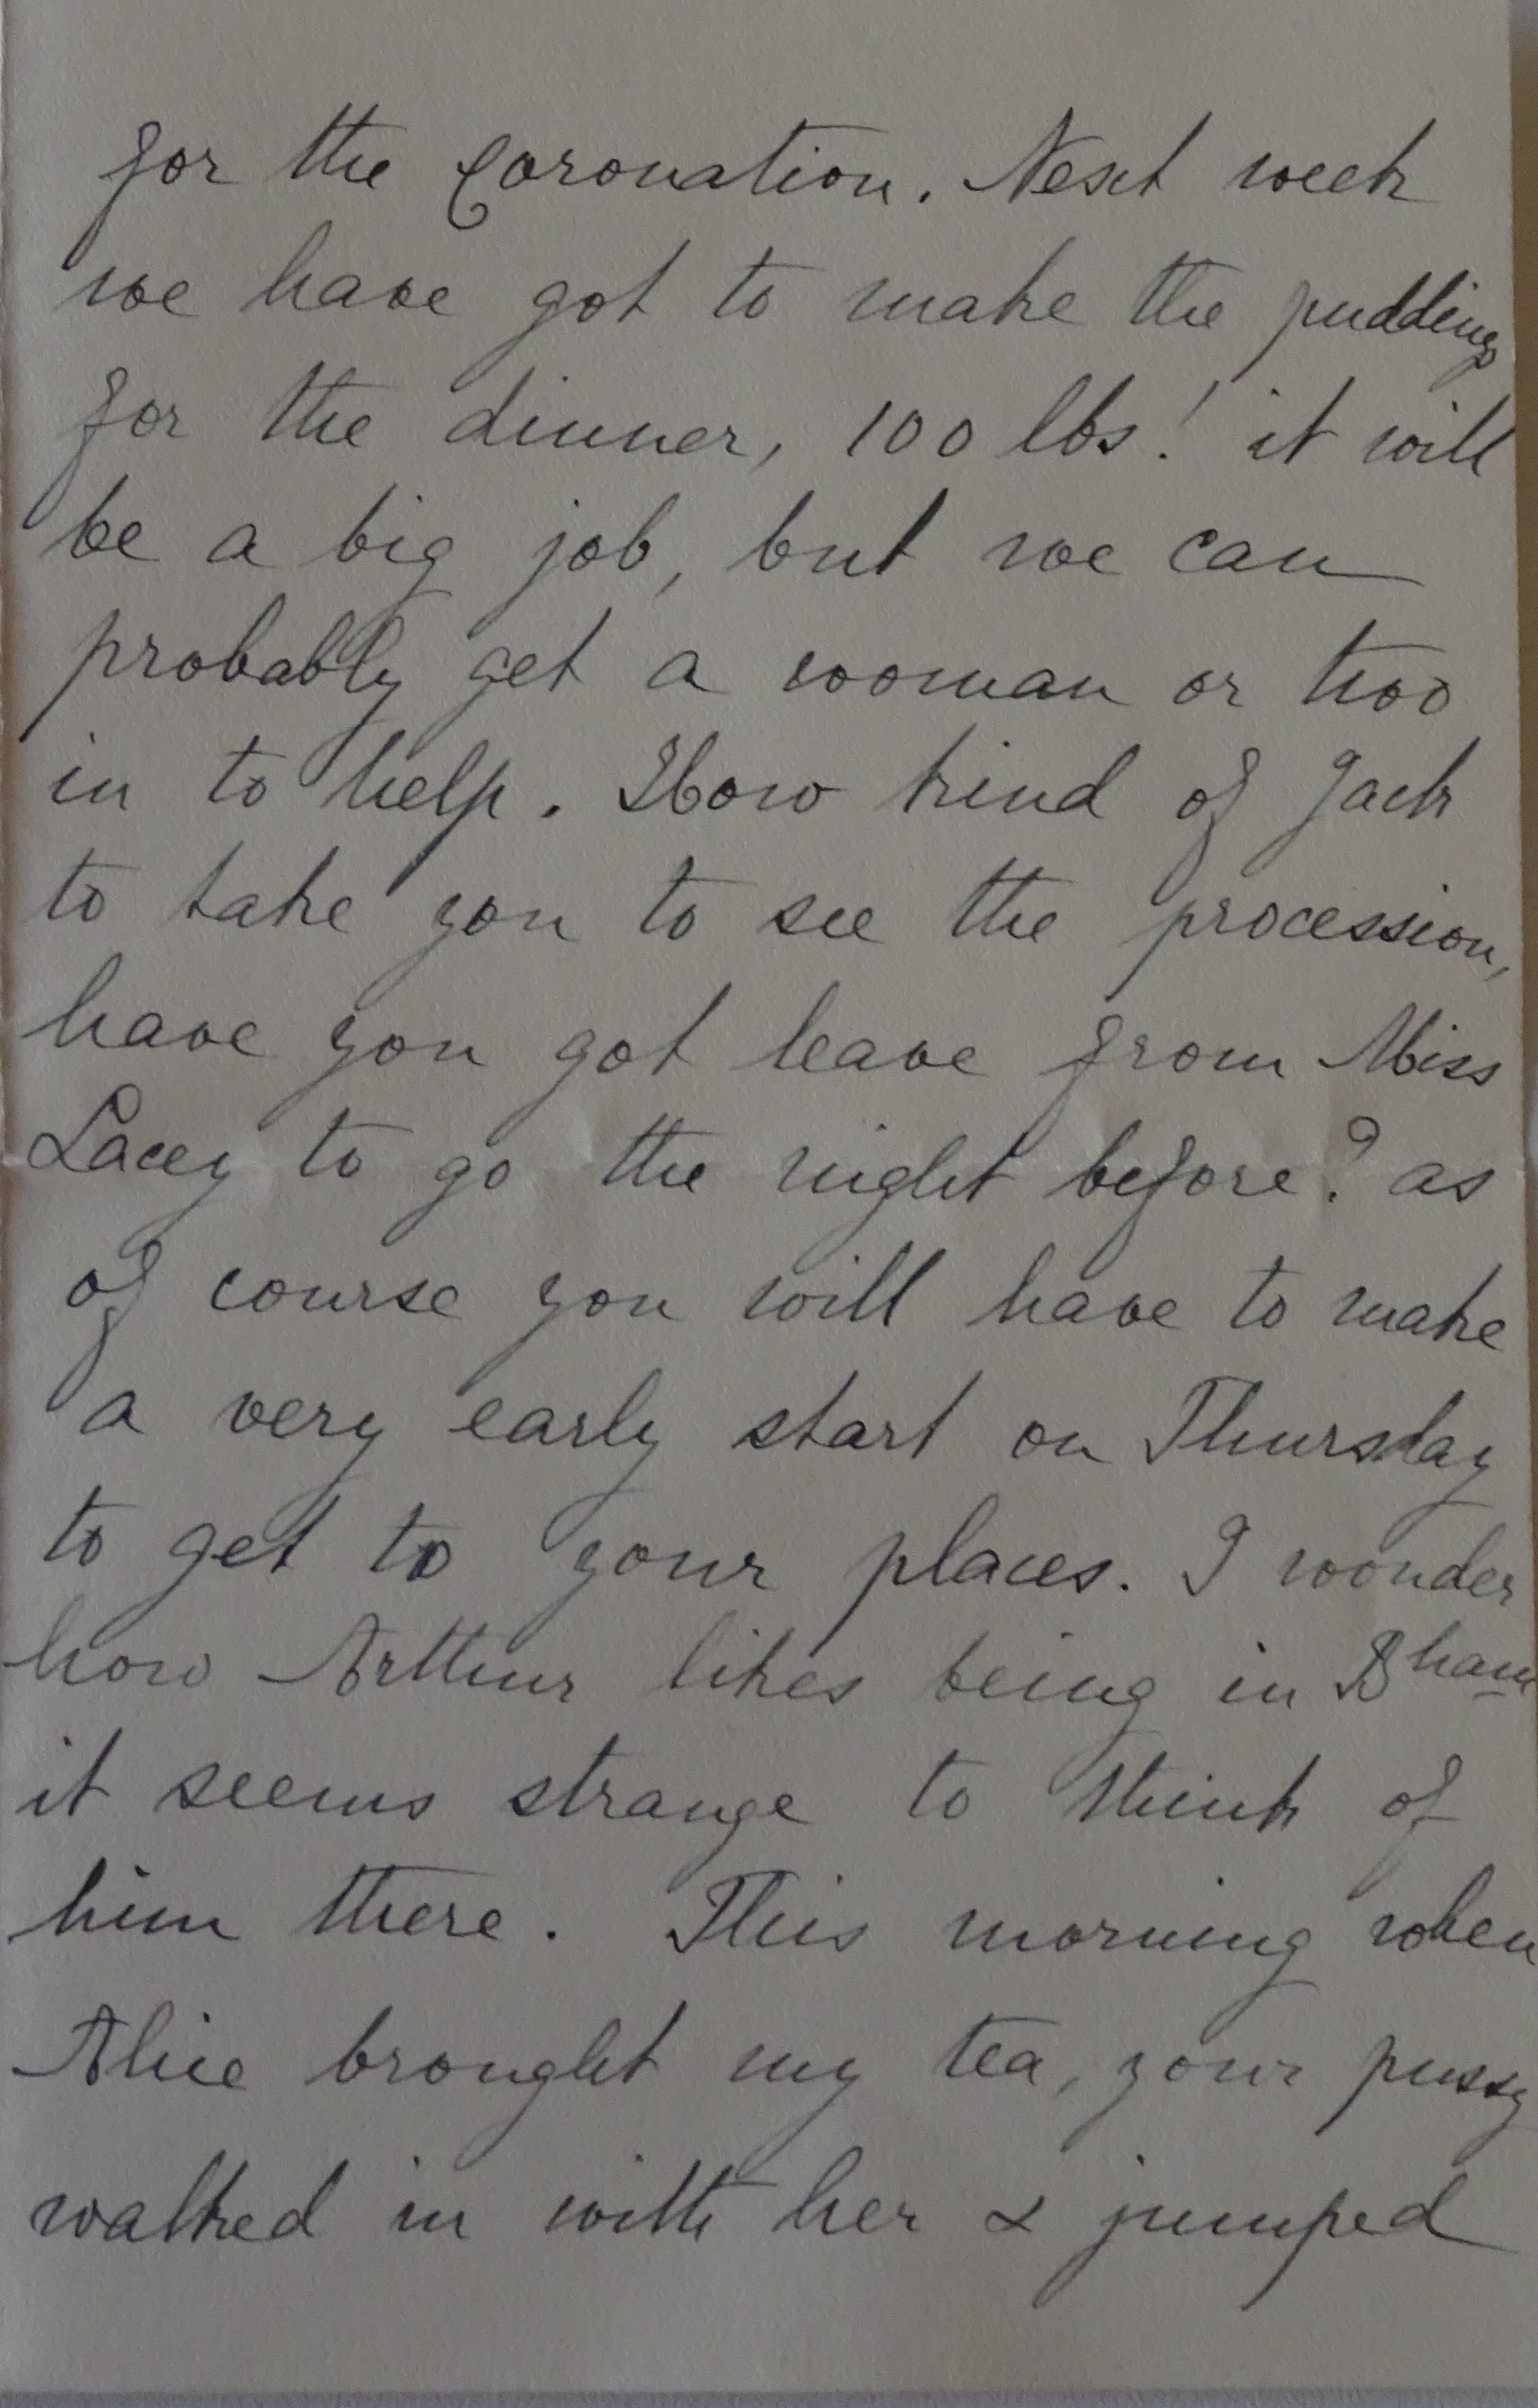 for the Coronation. Next week
we have got to make the puddings
for the dinner, 100 lbs! it will
be a big job, but we can
probably get a woman or two
in to help. How kind of Jack
to take you to see the procession,
have you got leave from Miss
Lacey to go the night before? as
of course you will have to make
a very early start on Thursday
to get to your places. I wonder
how Arthur likes being in Bham
it seems strange to think of
him there. This morning when
Alice brought my tea, your pussy
walked in with her & jumped